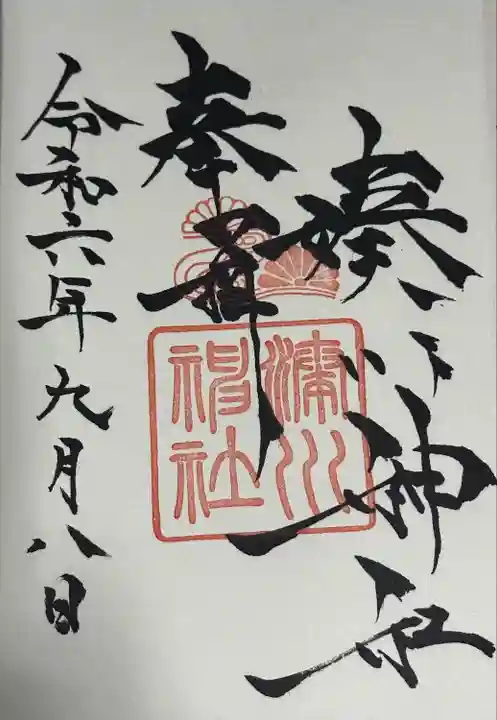 奉拝
湊川神社
湊川神社
令和六年九月八日